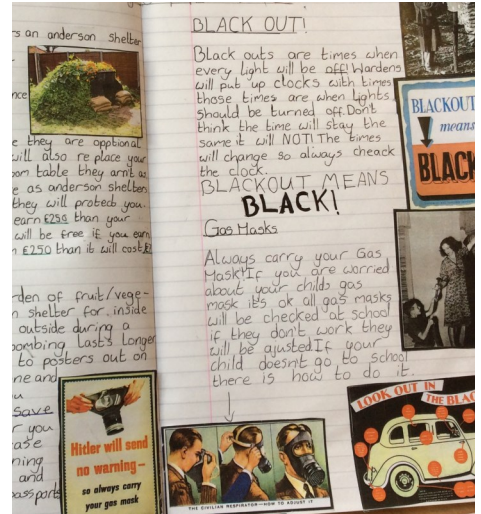 rs an anderson shelter
nce
e they are opptional
will also re place your
oom table they arn't as
e as anderson shelter
they will protect you.
earn £250 than your
will be free if you earn
£250 than it will cost
rden of fruit/vege-
n shelter for inside
outside during a
ombing Lasts Longer
to posters out on
ne and
u
save
r you
ase
ning
and
pass ports
Hitler will send
no warning—
so always carry
your gas mask
BLACK OUT!
Black outs are times when
every light will be off! Wardens
will put up clocks with times
those times are when lights
should be turned off. Don't
think the time will stay the
same it will NOT! The times
will change so always cheack
the clock.
BLACKOUT MEANS
BLACK!
Gas Masks
Always carry your Gas
Mask! If you are worried
about your childs gas
mask it's ok all gas masks
will be checked at school
if they don't work they
will be ajusted If your
child doesnt go to school
there is how to do it.
THE CIVILIAN RESPIRATOR—HOW TO ADJUST IT
BLACKOUT
means
BLACK
LOOK OUT IN
THE BLAC